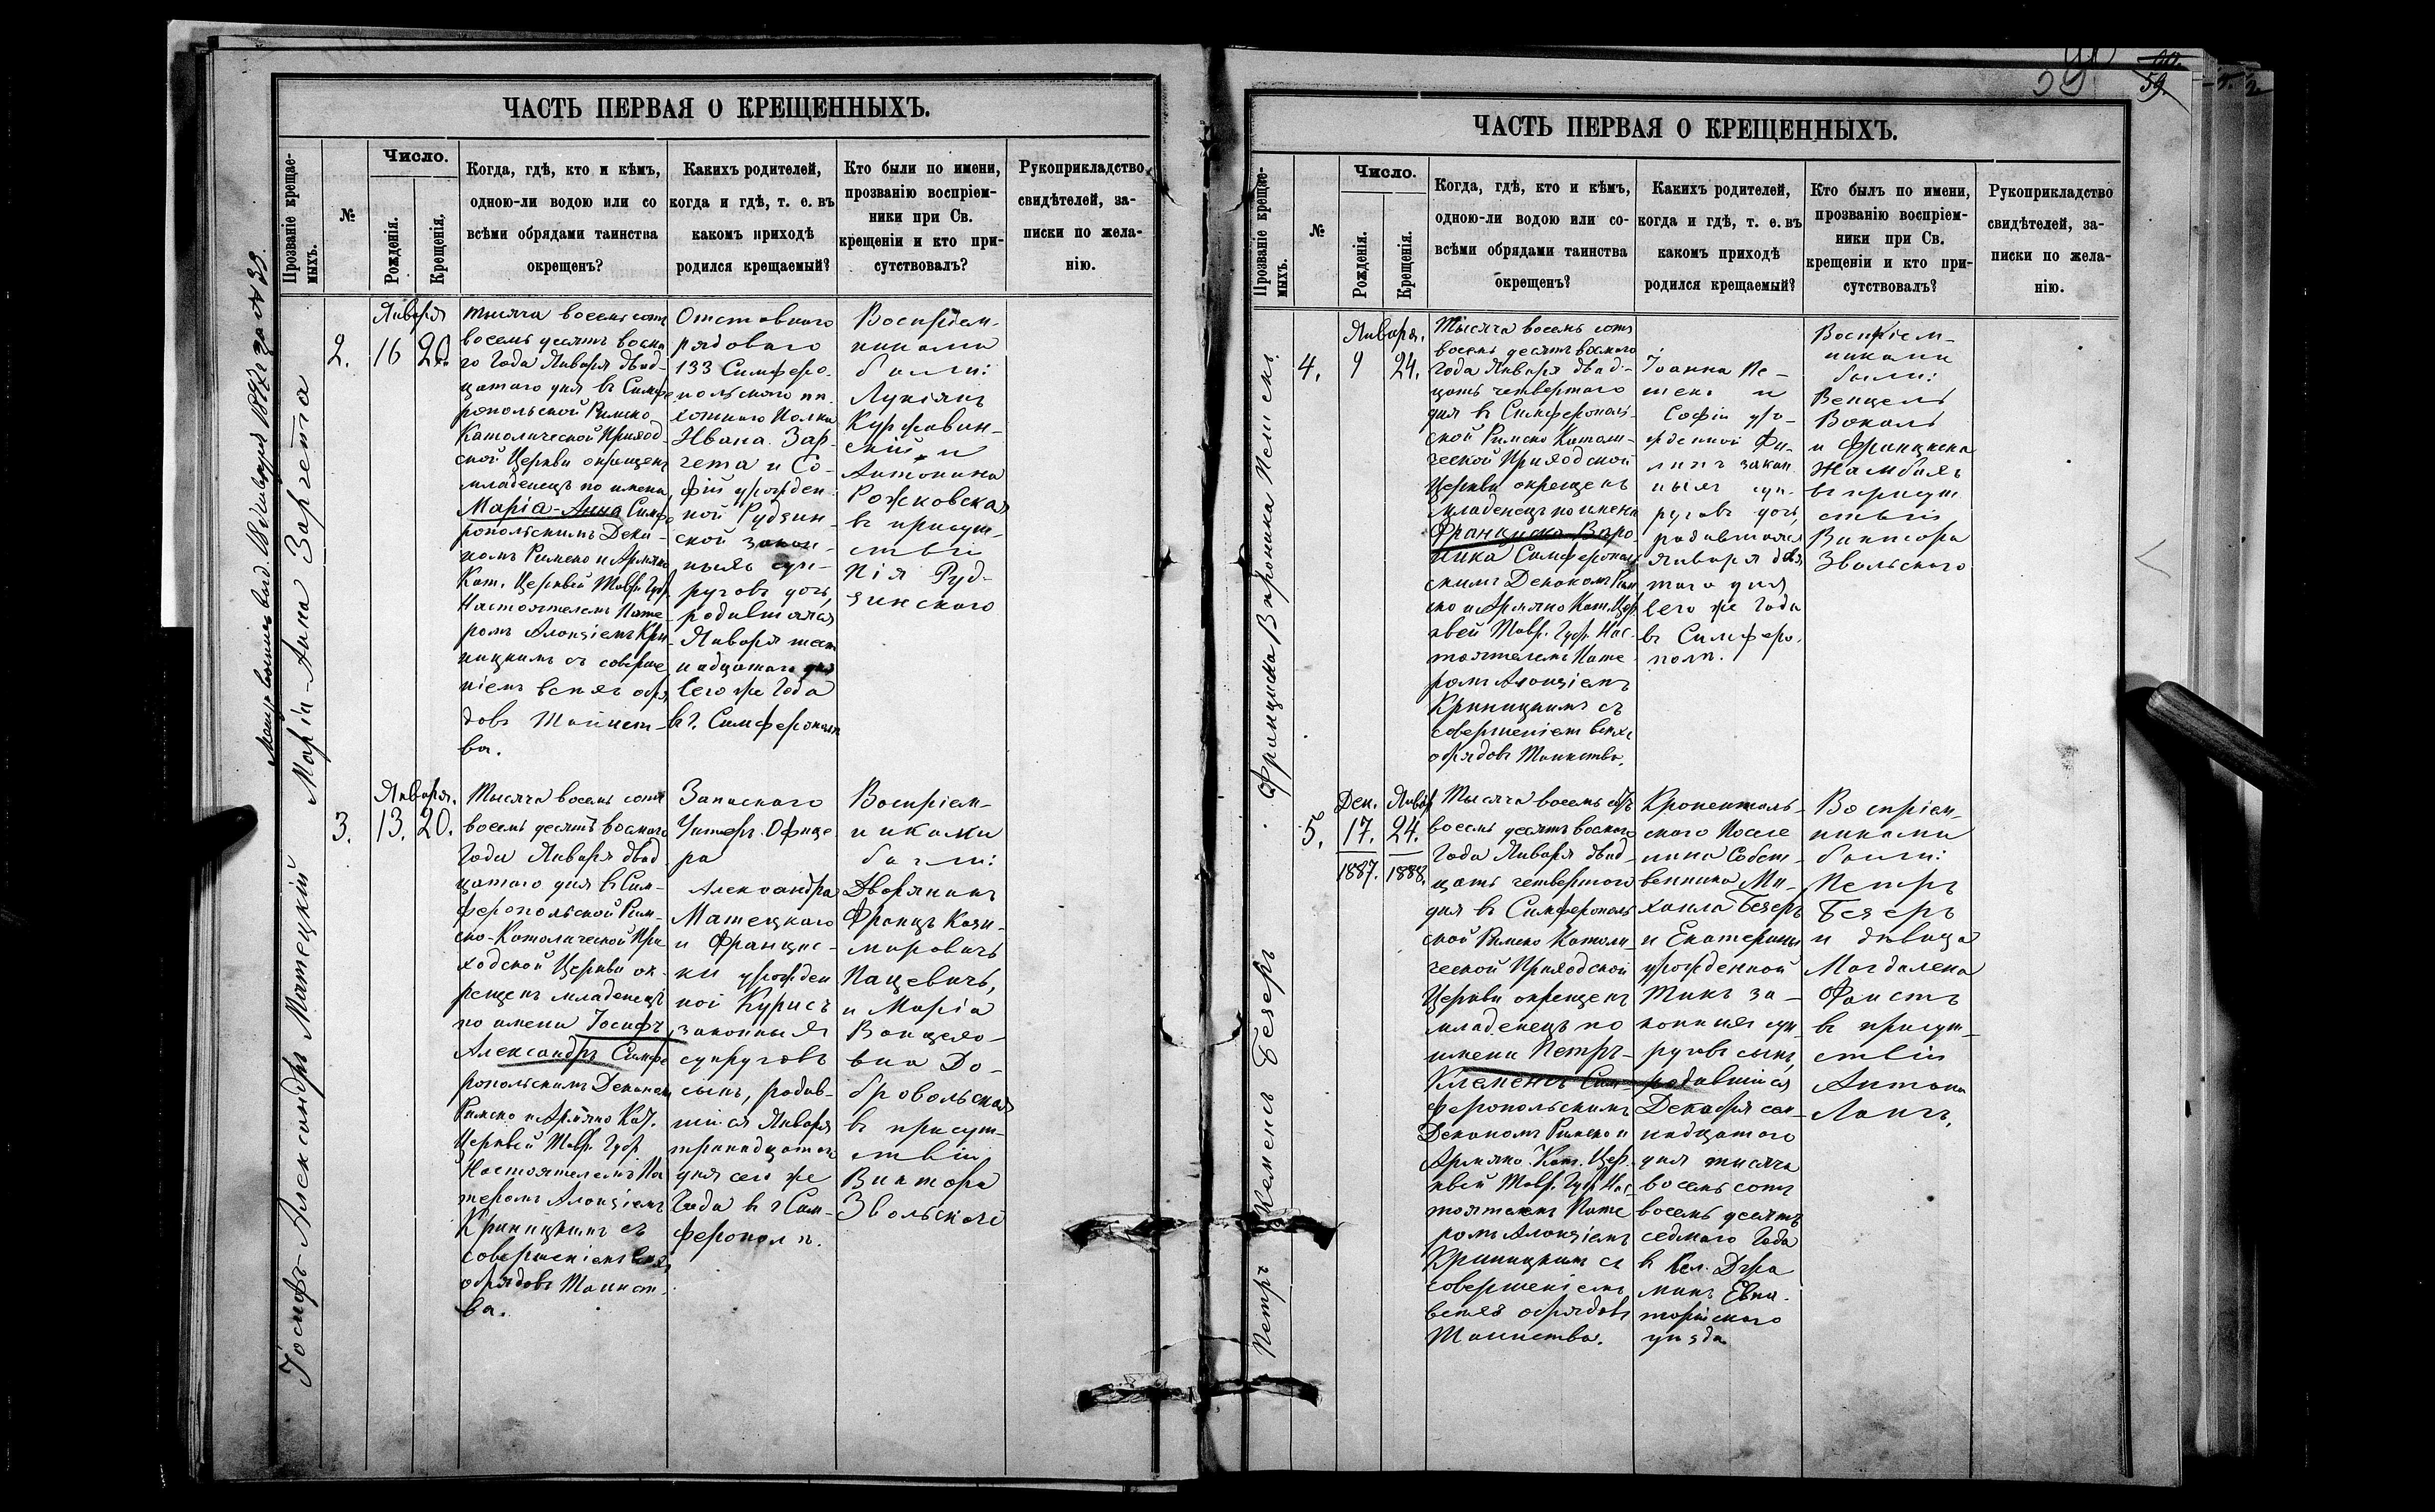 ЧАСТЬ ПЕРВАЯ О КРЕЩЕННЫХЪ.
Прозваніе крещае-
мыхъ.
№
Число.
Рожденія.
Крещенія.
Когда, гдѣ, кто и кѣмъ,
одною-ли водою или со
всѣми обрядами таинства
окрещенъ?
Каихъ родителей,
когда и гдѣ, т. е. въ
какомъ приходѣ
родился крещаемый?
Кто были по имени,
прозванію воспріем-
ники при Св.
крещеніи и кто при-
сутствовалъ?
Рукоприкладство
свидѣтелей, за-
писки по жела-
нію.
Марія-Анна Заргета
2.
Января
16 20.
Тысяча восемь сотъ
восемь десятъ восма
го Года Января двад-
цатаго дня въ Симфе
ропольской Римско
Католической Приход-
ской Церкви окрещенъ
младенецъ по имени
Марія-Анна Симфе
ропольскимъ Дека-
номъ Римско и Армяно
Кат. Церквей Тавр. Губ.
Настоятелемъ Пате-
ромъ Алоизіемъ Кри-
ницкимъ съ соверше
ніемъ всѣхъ обря
довъ Таинст-
ва.
Отставнаго
рядоваго
133 Симферо-
польскаго пѣ-
хотнаго Полка
Ивана Зар-
гета и Со-
фіи урожден-
ной Рудзин-
ской закон-
ныхъ суп-
руговъ дочь,
родившаяся
Января шест
надцатаго дня
сего же Года
въ г. Симферополѣ
Воспріем-
никами
были:
Лукіянъ
Куржавин-
скій и
Антонина
Рожковская
въ присут-
ствіи
Пія Руд-
зинскаго
Іосифъ-Александръ Матецкій
3.
Января.
13. 20.
Тысяча восемь сотъ
восемь десятъ восмаго
Года Января двад
цатаго дня въ Сим-
феропольской Рим-
ско-Католической При
ходской Церкви ок-
рещенъ младенецъ
по имени Іосифъ
Александръ Симфе
ропольскимъ Деканомъ
Римско и Армяно Кат.
Церквей Тавр. Губ.
Настоятелемъ Па
теромъ Алоизіемъ
Криницкимъ съ
совершеніемъ всѣхъ
обрядовъ Таинст-
ва.
Запаснаго
Унтеръ-Офице
ра
Александра
Матецкаго
и Францис-
ки урожден
ной Курисъ
законныхъ
супруговъ
сынъ, родив-
шійся Января
тринадцатаго
дня сего же
Года въ г. Сим-
ферополѣ.
Воспріем-
никами
были:
Дворянинъ
Францъ Кази-
мировичъ
Пацевичъ,
и Марія
Ванцело-
вна До-
бровольская
въ присут-
ствіи
Виктора
Звольскаго
59
59.
ЧАСТЬ ПЕРВАЯ О КРЕЩЕННЫХЪ.
Прозваніе крещае-
мыхъ.
№
Число.
Рожденія.
Крещенія.
Когда, гдѣ, кто и кѣмъ,
одною-ли водою или со-
всѣми обрядами таинства
окрещенъ?
Какихъ родителей,
когда и гдѣ, т. е. въ
какомъ приходѣ
родился крещаемый?
Кто былъ по имени,
прозванію воспріем-
ники при Св.
крещеніи и кто при-
сутствовалъ?
Рукоприкладство
свидѣтелей, за-
писки по жела-
нію.
Франциска Вероника Пешекъ.
4.
Января.
9 24.
Тысяча восемь сотъ
восемь десятъ восмаго
Года Января двад-
цать четвертаго
дня въ Симферополь-
ской Римско Католи-
ческой Приходской
Церкви окрещенъ
младенецъ по имени
Франциска Веро-
ника Симферополь-
скимъ Деканомъ Рим
ско и Армяно Кат. Цер
квей Тавр. Губ. Нас-
тоятелемъ Пате
ромъ Алоизіемъ
Криницкимъ съ
совершеніемъ всѣхъ
обрядовъ Таинства.
Іоанна Пе-
шекъ и
Софіи уро-
жденной Фи-
липъ закон
ныхъ суп-
руговъ дочь,
родившаяся
Января девя
таго дня
сего же Года
въ Симферо-
полѣ.
Воспріем-
никами
были:
Венцель
Вокаль
и Франциска
Жамбахъ
въ присут
ствіи
Виктора
Звольскаго
Петръ Клеменсъ Безеръ
5.
Дек. Янвр
17. 24.
1887. 1888.
Тысяча восемь сотъ
восемь десятъ восмаго
Года Января двад-
цать четвертаго
дня въ Симферополь
ской Римско Католи-
ческой Приходской
Церкви окрещенъ
младенецъ по
имени Петръ-
Клеменсъ Сим-
феропольскимъ
Деканомъ Римско и
Армяно Кат. Цер-
квей Тавр. Губ. Нас-
тоятелемъ Пате
ромъ Алоизіемъ
Криницкимъ съ
совершеніемъ
всѣхъ обрядовъ
Таинства.
Кронентальскаго
скаго Посе
нина Собст-
венника Ми-
хаила Безеръ
и Екатерины
урожденной
Тикъ за-
конныхъ суп
руговъ сынъ,
родившійся
Декабря сем-
надцатаго
дня тысяча
восемь сотъ
восемь десятъ
седмаго Года
въ кол. Джа
минъ Евпа-
торійскаго
уѣзда
Воспріем-
никами
были:
Петръ
Безеръ
и дѣвица
Магдалена
Фаистъ
въ присут-
ствіи
Антона
Лангъ.